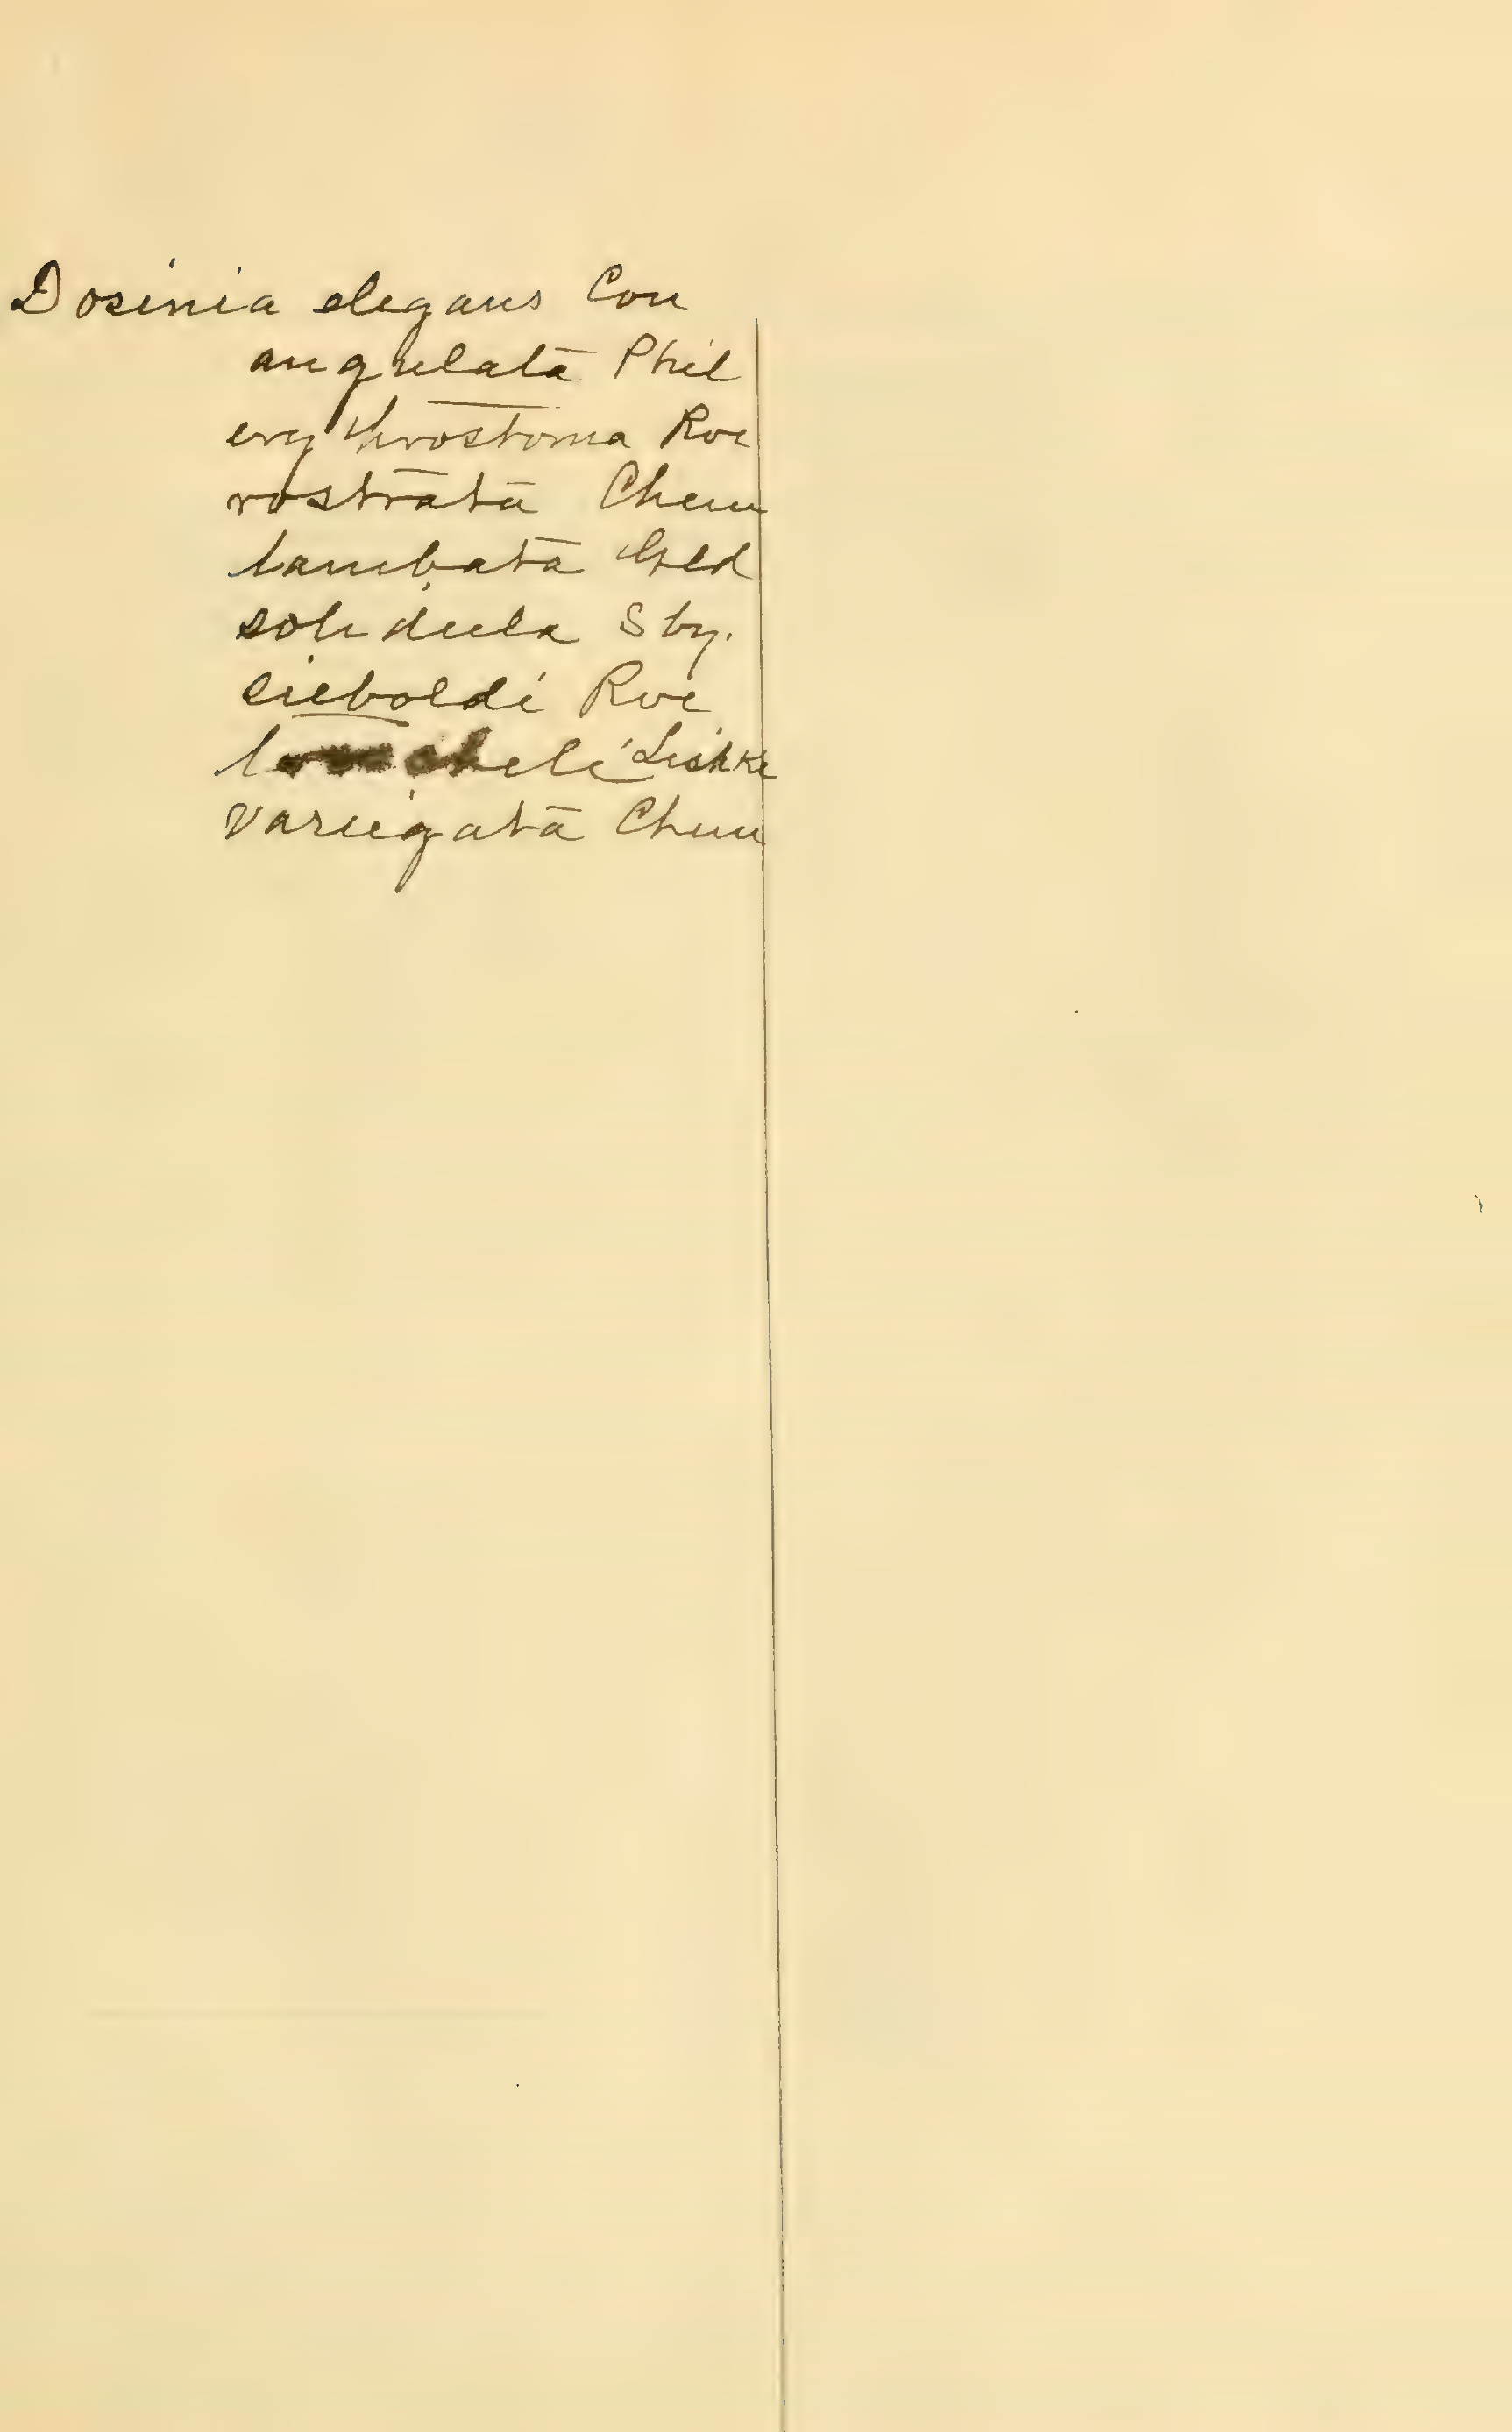 Dosinia elegans Con
angulata Phil
erythrostoma Roe
rostrata Chem
lambata Gld
solidula Sby.
sieboldi Rve
Lishke
variegata Chem